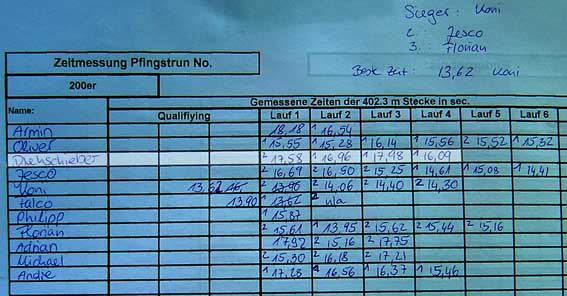 Sieger: Koni
2. Jesco
3. Florian
Beste Zeit: 13,62 Koni
Zeitmessung Pfingstrun No.
200er
Gemessene Zeiten der 402.3 m Stecke in sec.
Name: Qualifiying Lauf 1 Lauf 2 Lauf 3 Lauf 4 Lauf 5 Lauf 6
Armin 18,18 1 16,54
Oliver 1 15,55 1 15,28 1 16,14 1 15,56 2 15,52 1 15,32
Drehschieber 2 17,58 1 16,96 1 17,98 1 16,09
Jesco 2 16,69 2 16,50 2 15,25 1 14,61 1 15,08 1 14,41
Koni 13,62 2 13,90 2 14,06 2 14,40 2 14,30
Falco 13,90 1 13,62 n/a
Philipp 1 15,87
Florian 2 15,61 1 13,95 2 15,62 2 15,44 2 15,16
Adrian 17,92 2 15,16 2 17,75
Michael 2 15,30 2 16,18 2 17,21
Andre 1 17,28 16,56 1 16,37 1 15,46